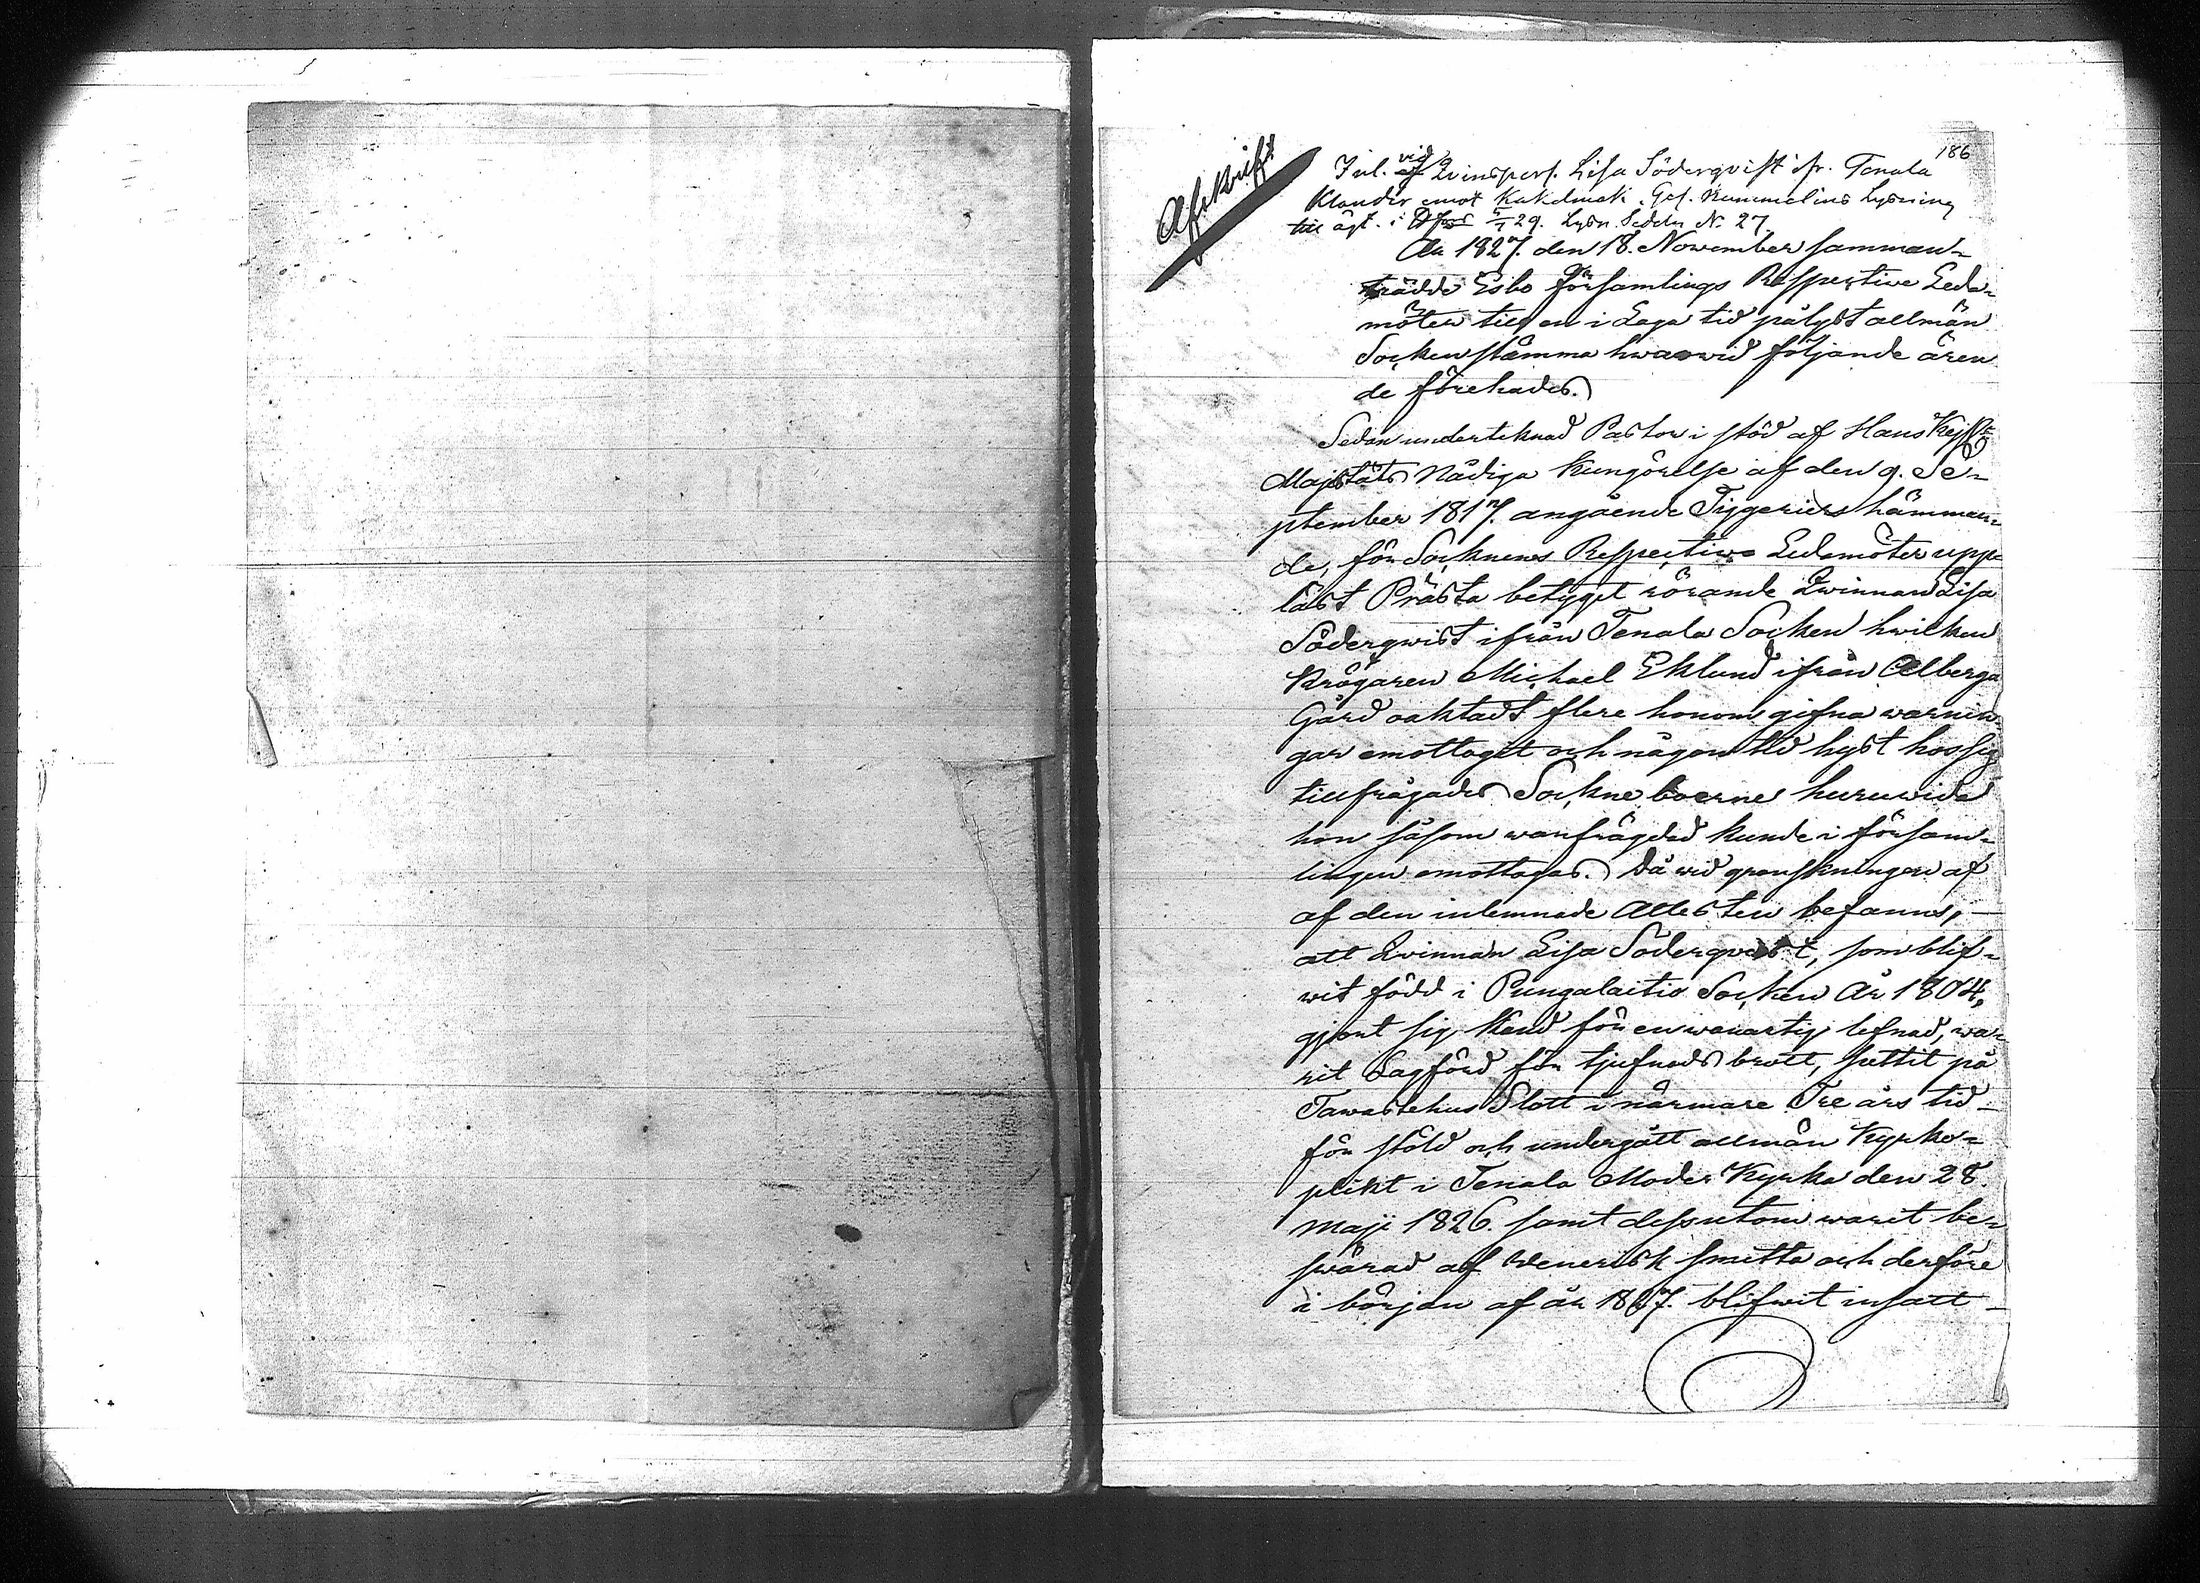 186
Afskrift
Inl. vid Qvinspers. Lisa Söderqvist's fr. Tenala
Klander emot Kakelmak. Ges. Hummelins Lysning
till äkt. i 29. Lysn. Sedeln No 27
År 1827. den 18. November samman-
trädde Esbo församlings Respective Leda-
möter till en i Laga tid pålyst allmän
Sockenstämma hwarwid följande ären
de förehades.
Sedan undertecknad Pastor i stöd af Hans Kejsl.
Majestäts Nådiga Kungörelse af den 9. Se-
ptember 1817. angående Tiggeriers hämman-
de, för Socknens Respective Ledamöter upp-
läst Prästa betyget rörande Qwinnan Lisa
Söderqwist ifrån Tenala Socken hwilken
Krögaren Michael Eklund ifrån Alberga
Gård oaktadt flere honom gifna warnin
gar emottagit och någon tid hyst hos sig
tillfrågades Sockneboerne huruwida
hon såsom wanfrägdad kunde i försam-
lingen emottagas. Då wid granskningen af
af den inlemnade Attesten befanns,
att Qvinnan Lisa Söderqvist, som blif-
wit född i Pungalaitio Socken År 1804,
gjort sig känd för en wanartig lefnad, wa-
rit Lagförd för tjufnads brott, suttit på
Tawastehus Slott i närmare Tre års tid
för stöld och undergått allmän Kyrko-
plikt i Tenala Moder Kyrka den 28.
Maji 1826. samt dessutom warit be-
swärad af Wenerisk smitta och derföre
i början af år 1827. blifwit insatt